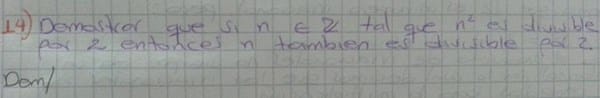 14) Demostrar que si n ∈ Z tal que n² es divisible
por 2 entonces n tambien es divisible por 2.
Dem/